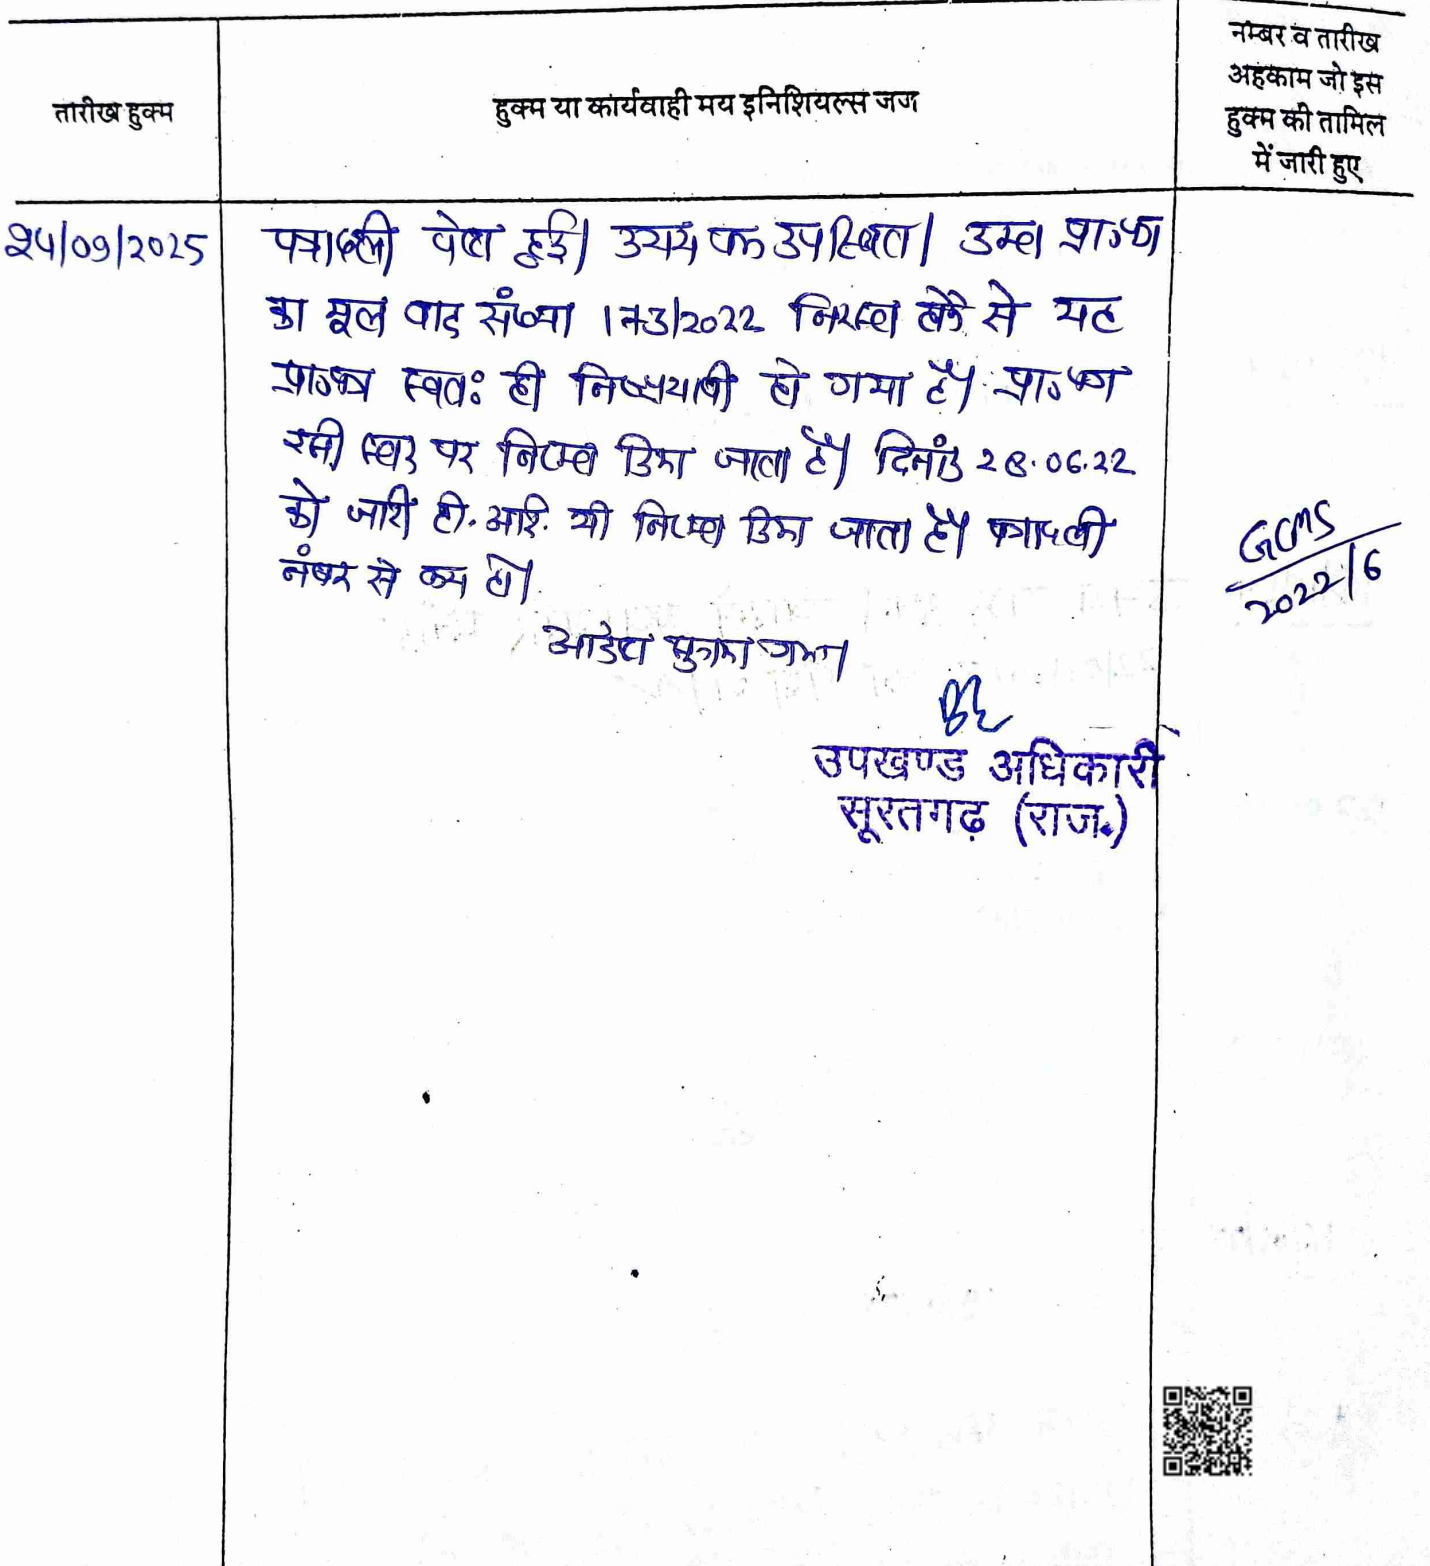 तारीख हुक्म
हुक्म या कार्यवाही मय इनिशियल्स जज
नम्बर व तारीख
अहकाम जो इस
हुक्म की तामिल
में जारी हुए
24/09/2025
पत्रावली पेश हुई। उभय पक्ष उपस्थित। उक्त प्रा०पत्र
का मूल वाद संख्या 173/2022 निरस्त होने से यह
प्रा०पत्र स्वतः ही निष्प्रभावी हो गया है। प्रा०पत्र
इसी स्तर पर निरस्त किया जाता है। दिनांक 28.06.22
को जारी टी.आई. भी निरस्त किया जाता है। पत्रावली
नंबर से कम हो।
आदेश सुनाया गया।
उपखण्ड अधिकारी
सूरतगढ़ (राज.)
GCMS
2022/6